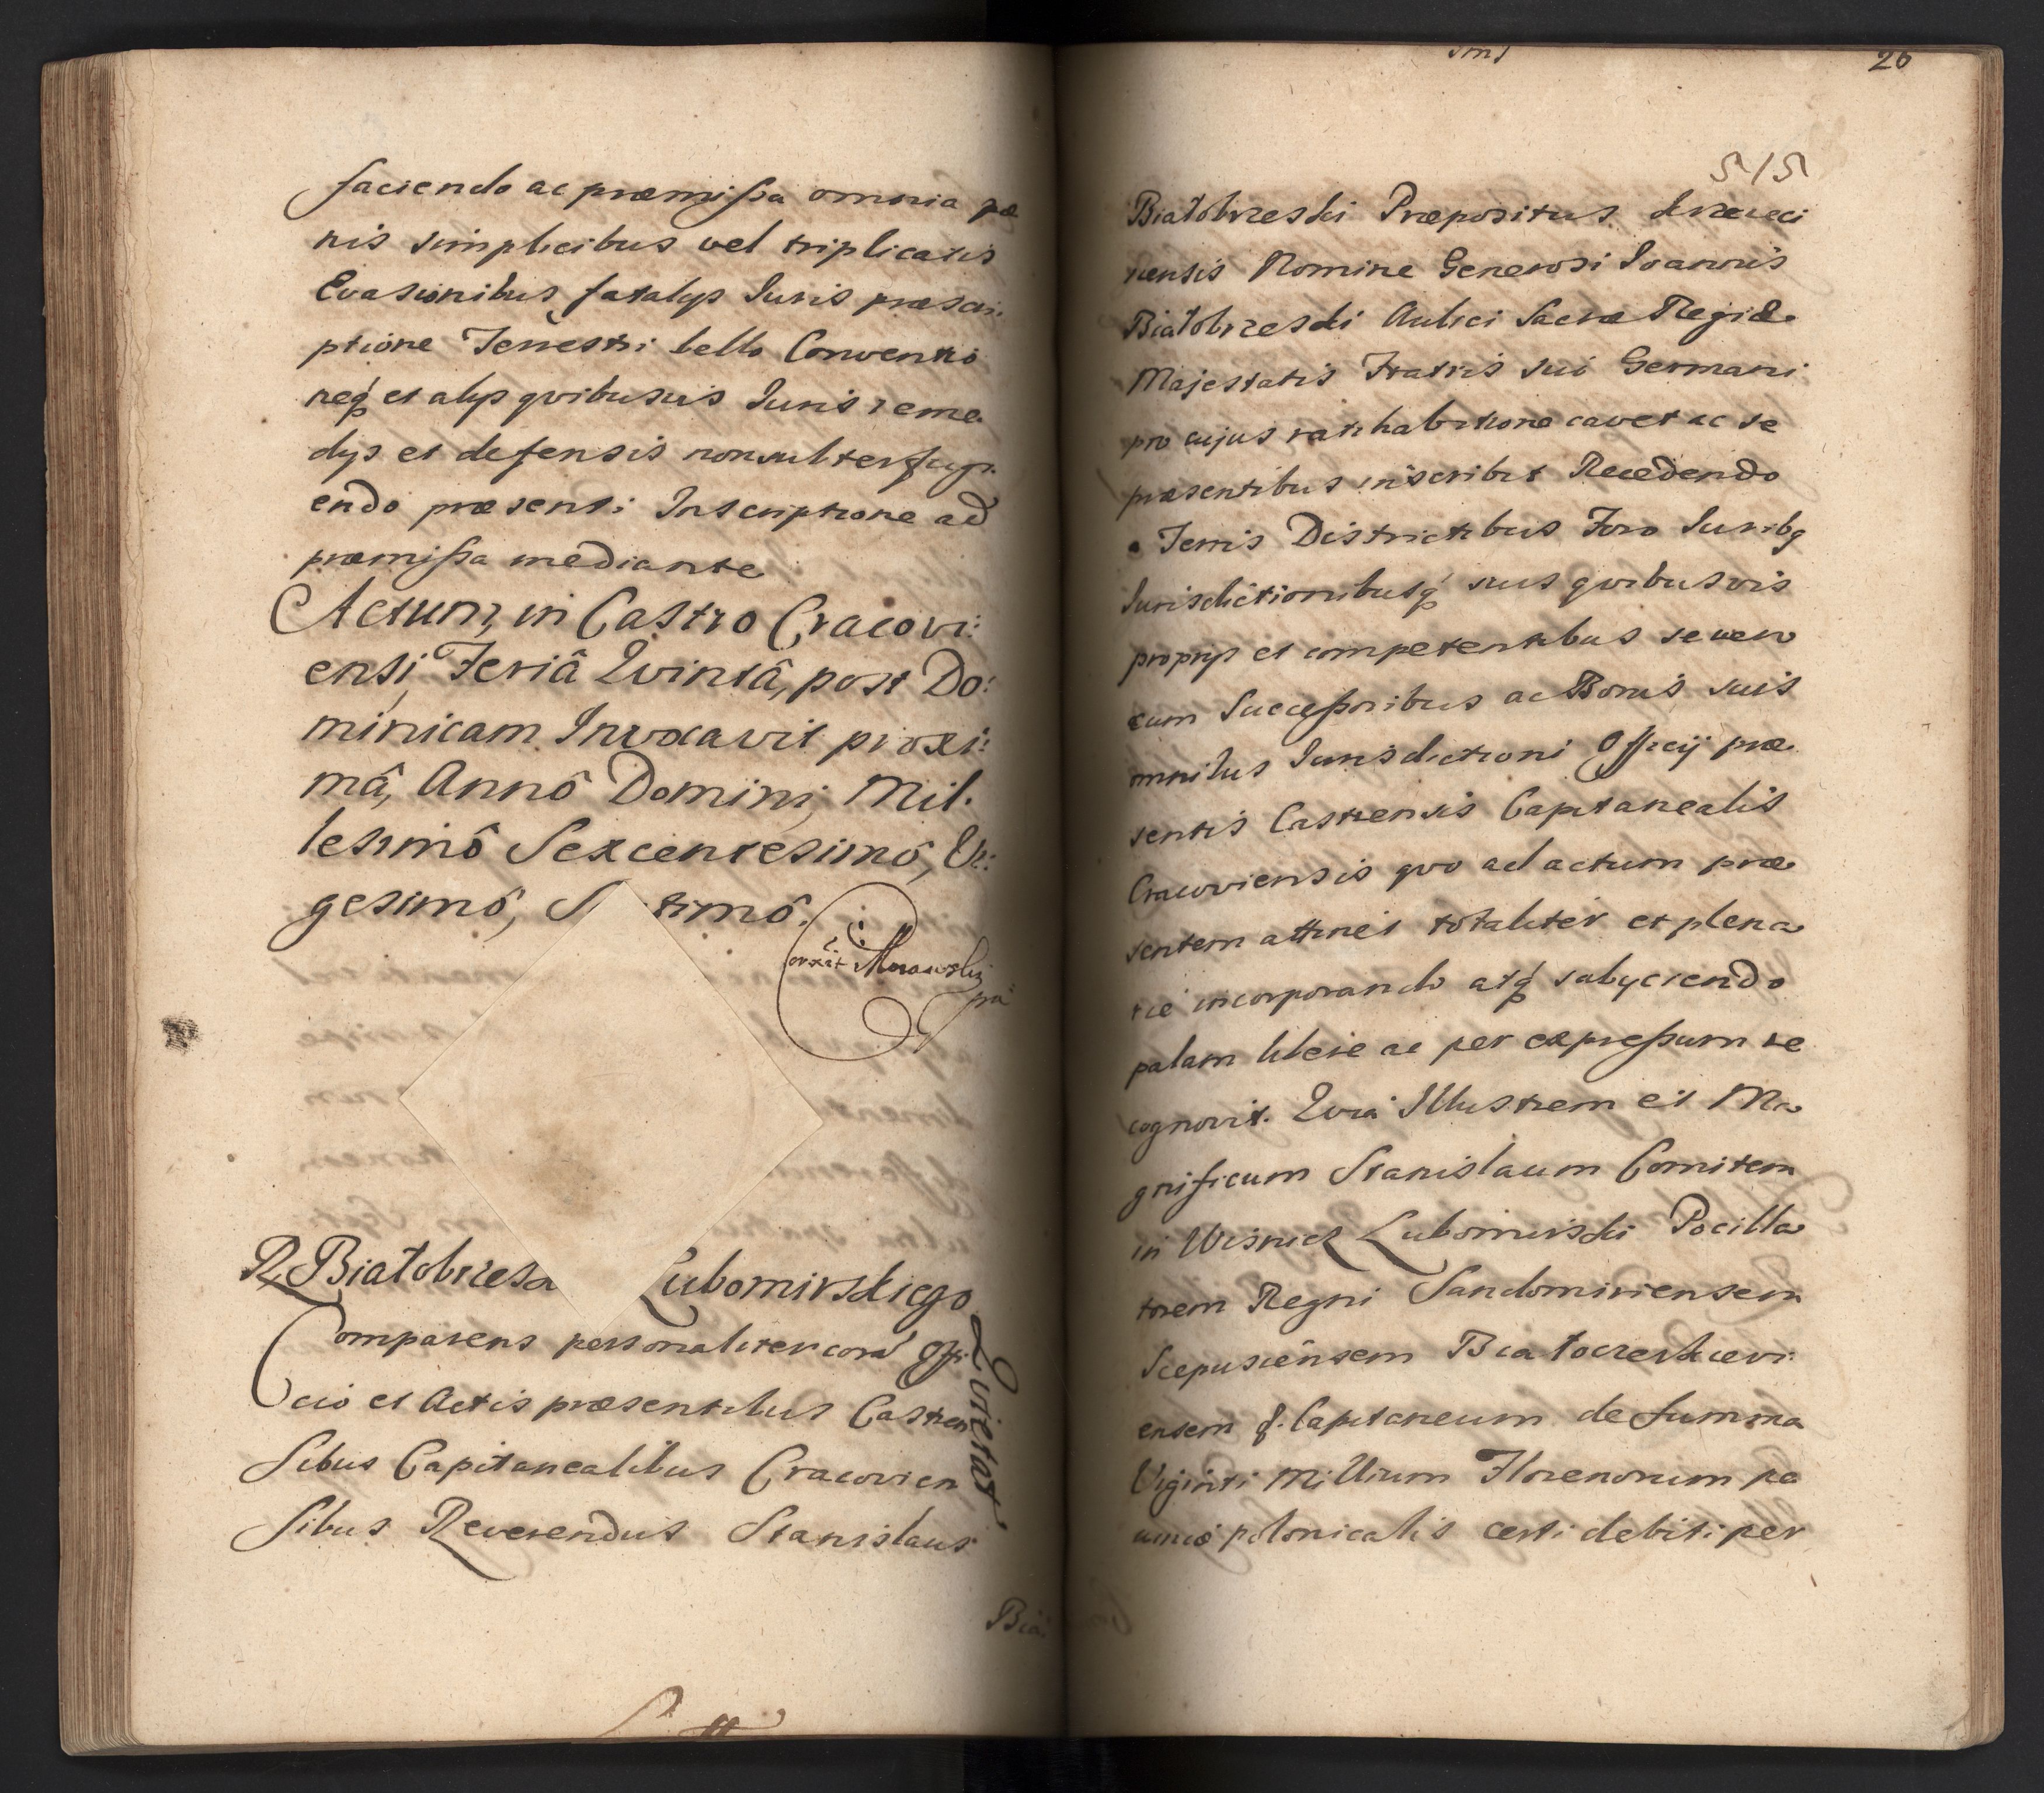 faciendo ac præmissa omnia pæ
nis simplicibus vel triplicatis
Evasionibus fatalys Iuris præscri.
ptione Terrestri bello Conventio
neq́ et alys qvibusvis Iuris reme
dys et defensis non subterfugi.
endo præsenti Inscriptione ad
præmissa mediante
Actum, in Castro Cracovi:
ensi, Feriâ Qvintâ, post Do:
minicam Invocavit proxi:
mâ, Annô Domini, Mil.
lesimô Sexcentesimô, Vi:
gesimô, S timô.
Morawsky
R. Białobrzesa Lubomirskiego
Quietat
Comparens personaliter corā Offi
cio et Actis præsentibus Castren
sibus Capitanealibus Cracovien
sibus Reverendus Stanislaus
Bia:
26
515
Białobrzeski Præpositus
nensis Nomine Generosi Ioannis
Białobrzeski Aulici Sacræ Regiæ
Majestatis Fratris sui Germani
pro cujus ratihabitione cavet ac se
præsentibus inscribit Recedendo
a Terris Districtibus Foro Iuribq
Iurisdictionibusq́ suis qvibusvis
proprys et competentibus se vero
cum Successoribus ac Bonis suis
omnibus Iurisdictioni Officij præ
sentis Castrensis Capitanealis
Cracoviensis qvo ad actum præ
sentem attinet totaliter et plena
rie incorporando atq́ subyciendo
palam libere ac per expressum re
cognovit. Qvia Illustrem et Ma
gnificum Stanislaum Comitem
in Wisnicz Lubomirski Pocilla
torem Regni Sandomiriensem
Scepusiensem Białocerkievi
ensem q. Capitaneum de summa
Viginti Millium Florenorum pe
cuniæ polonicalis certi debiti per